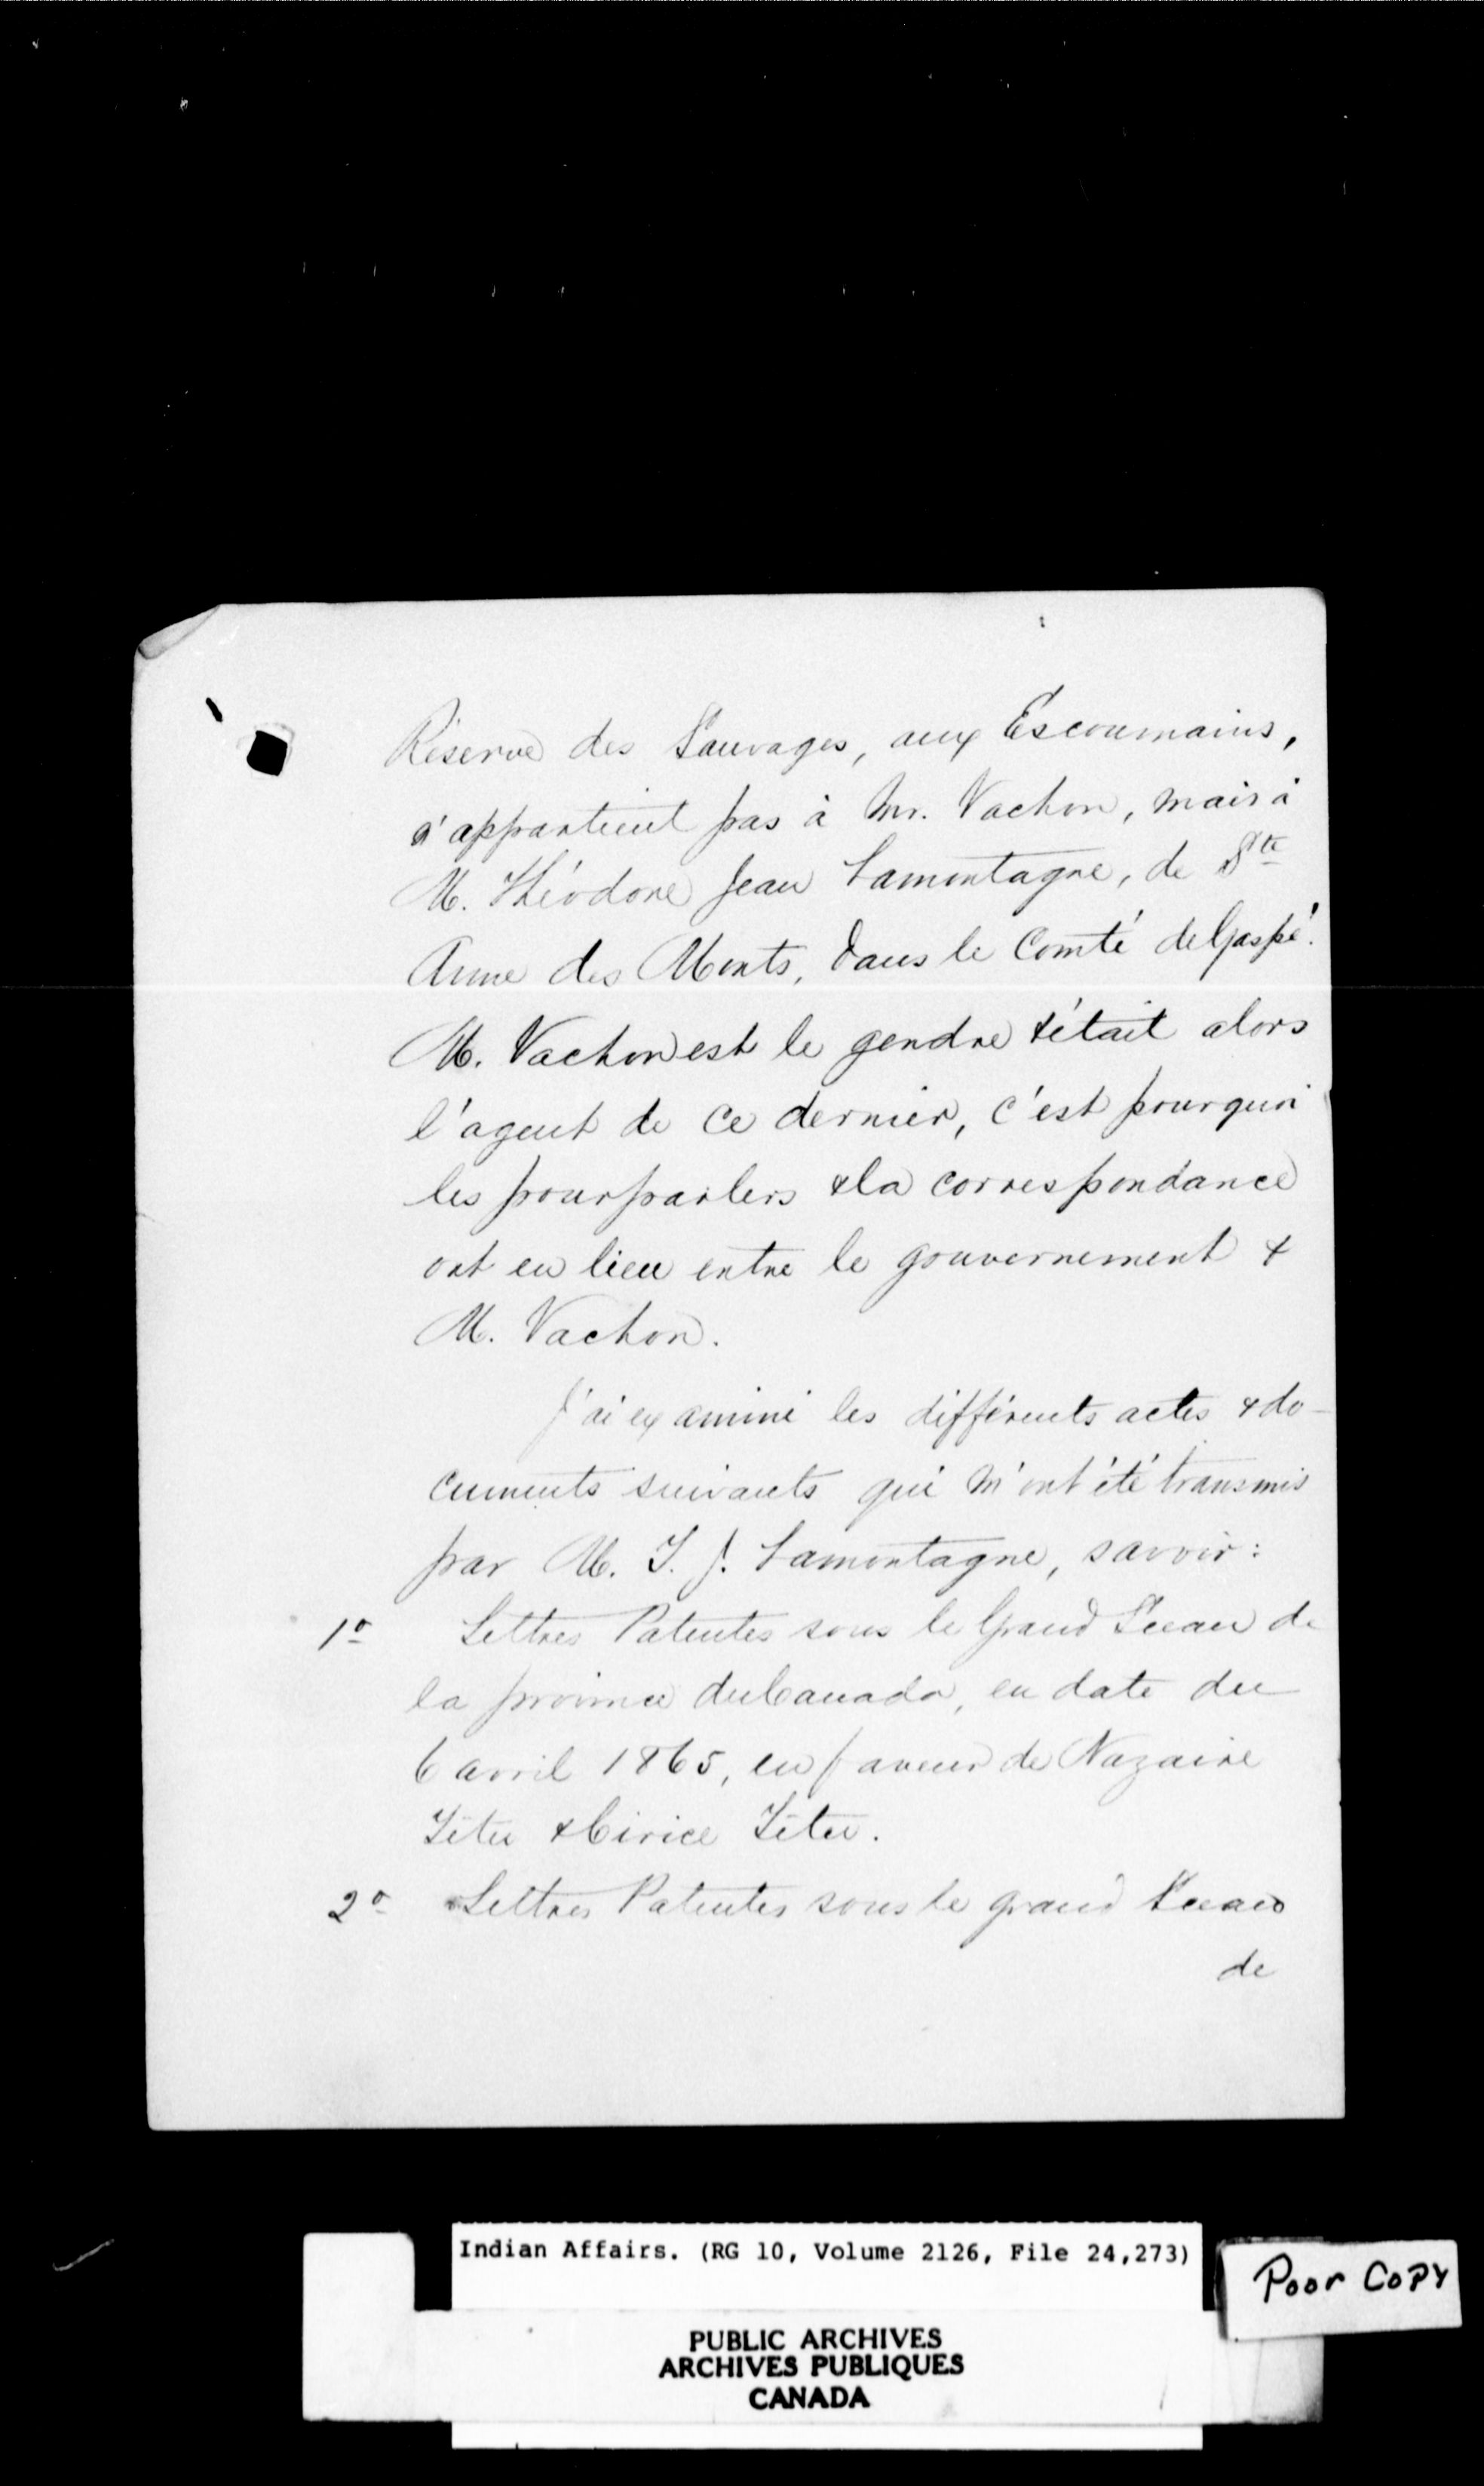 Réserve des Sauvages, aux Escoumains,
n'appartient pas à Mr. Vachon, mais à
M. Théodore Jean Lamontagne, de Ste
Anne des Monts, dans le Comté de Gaspé.
M. Vachon est le gendre & était alors
l'agent de ce dernier, c'est pourquoi
les pourparlers & la correspondance
ont eu lieu entre le gouvernement &
M. Vachon.
J'ai examiné les différents actes & do-
cuments suivants qui m'ont été transmis
par M. T. J. Lamontagne, savoir:
1o Lettres Patentes sous le Grand Sceau de
la province du Canada, en date du
6 avril 1865, en faveur de Nazaire
Têtu & Cirice Têtu.
2o Lettres Patentes sous le grand Sceau
de
Indian Affairs. (RG 10, Volume 2126, File 24,273)
Poor Copy
PUBLIC ARCHIVES
ARCHIVES PUBLIQUES
CANADA